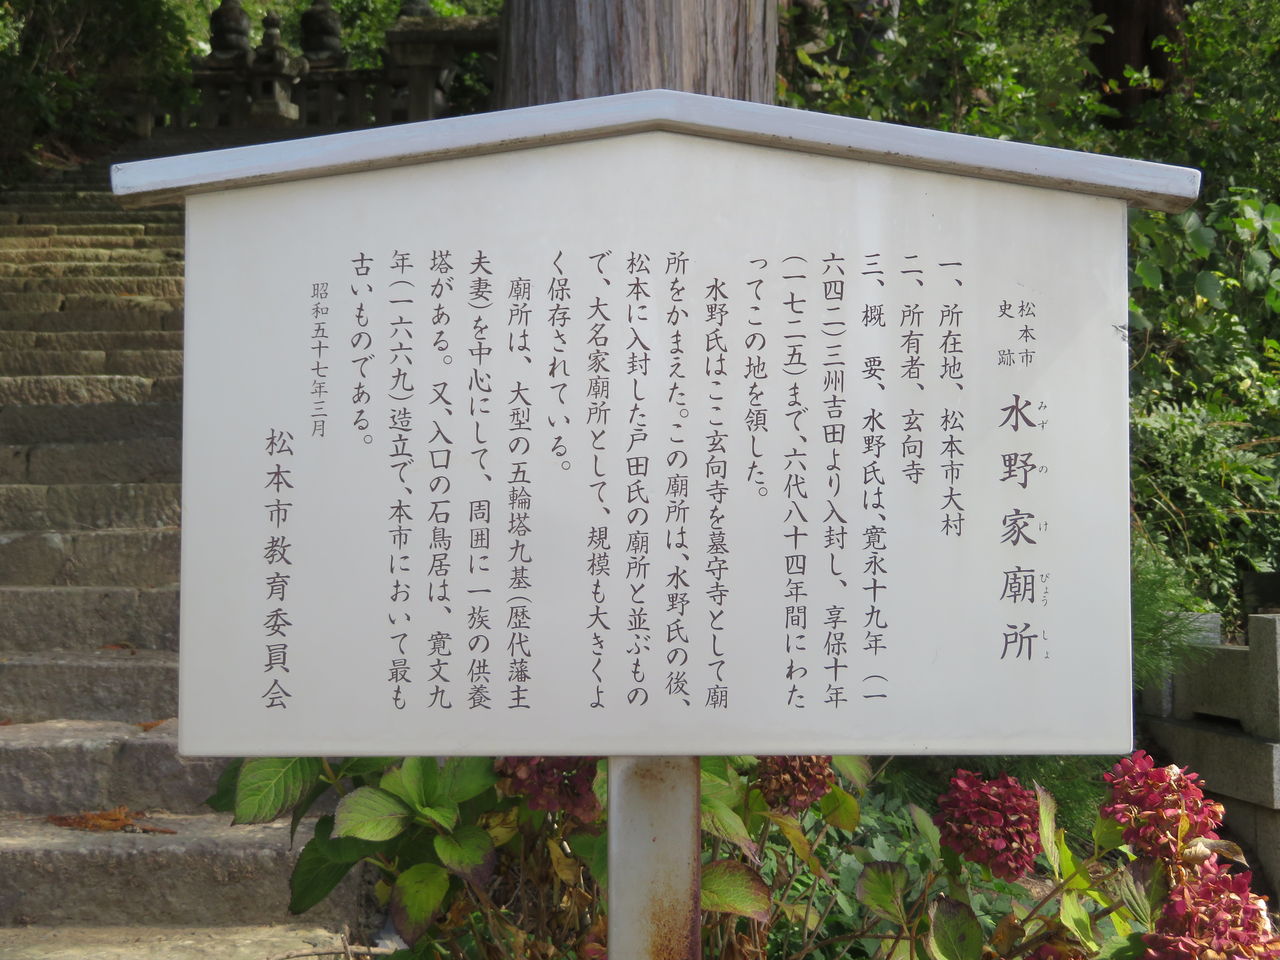 松本市
史跡
水野家廟所
みずのけびょうしょ
一、所在地、松本市大村
二、所有者、玄向寺
三、概　要、水野氏は、寛永十九年（一
六四二）三州吉田より入封し、享保十年
（一七二五）まで、六代八十四年間にわた
ってこの地を領した。
水野氏はここ玄向寺を墓守寺として廟
所をかまえた。この廟所は、水野氏の後、
松本に入封した戸田氏の廟所と並ぶもの
で、大名家廟所として、規模も大きくよ
く保存されている。
廟所は、大型の五輪塔九基（歴代藩主
夫妻）を中心にして、周囲に一族の供養
塔がある。又、入口の石鳥居は、寛文九
年（一六六九）造立で、本市において最も
古いものである。
昭和五十七年三月
松本市教育委員会